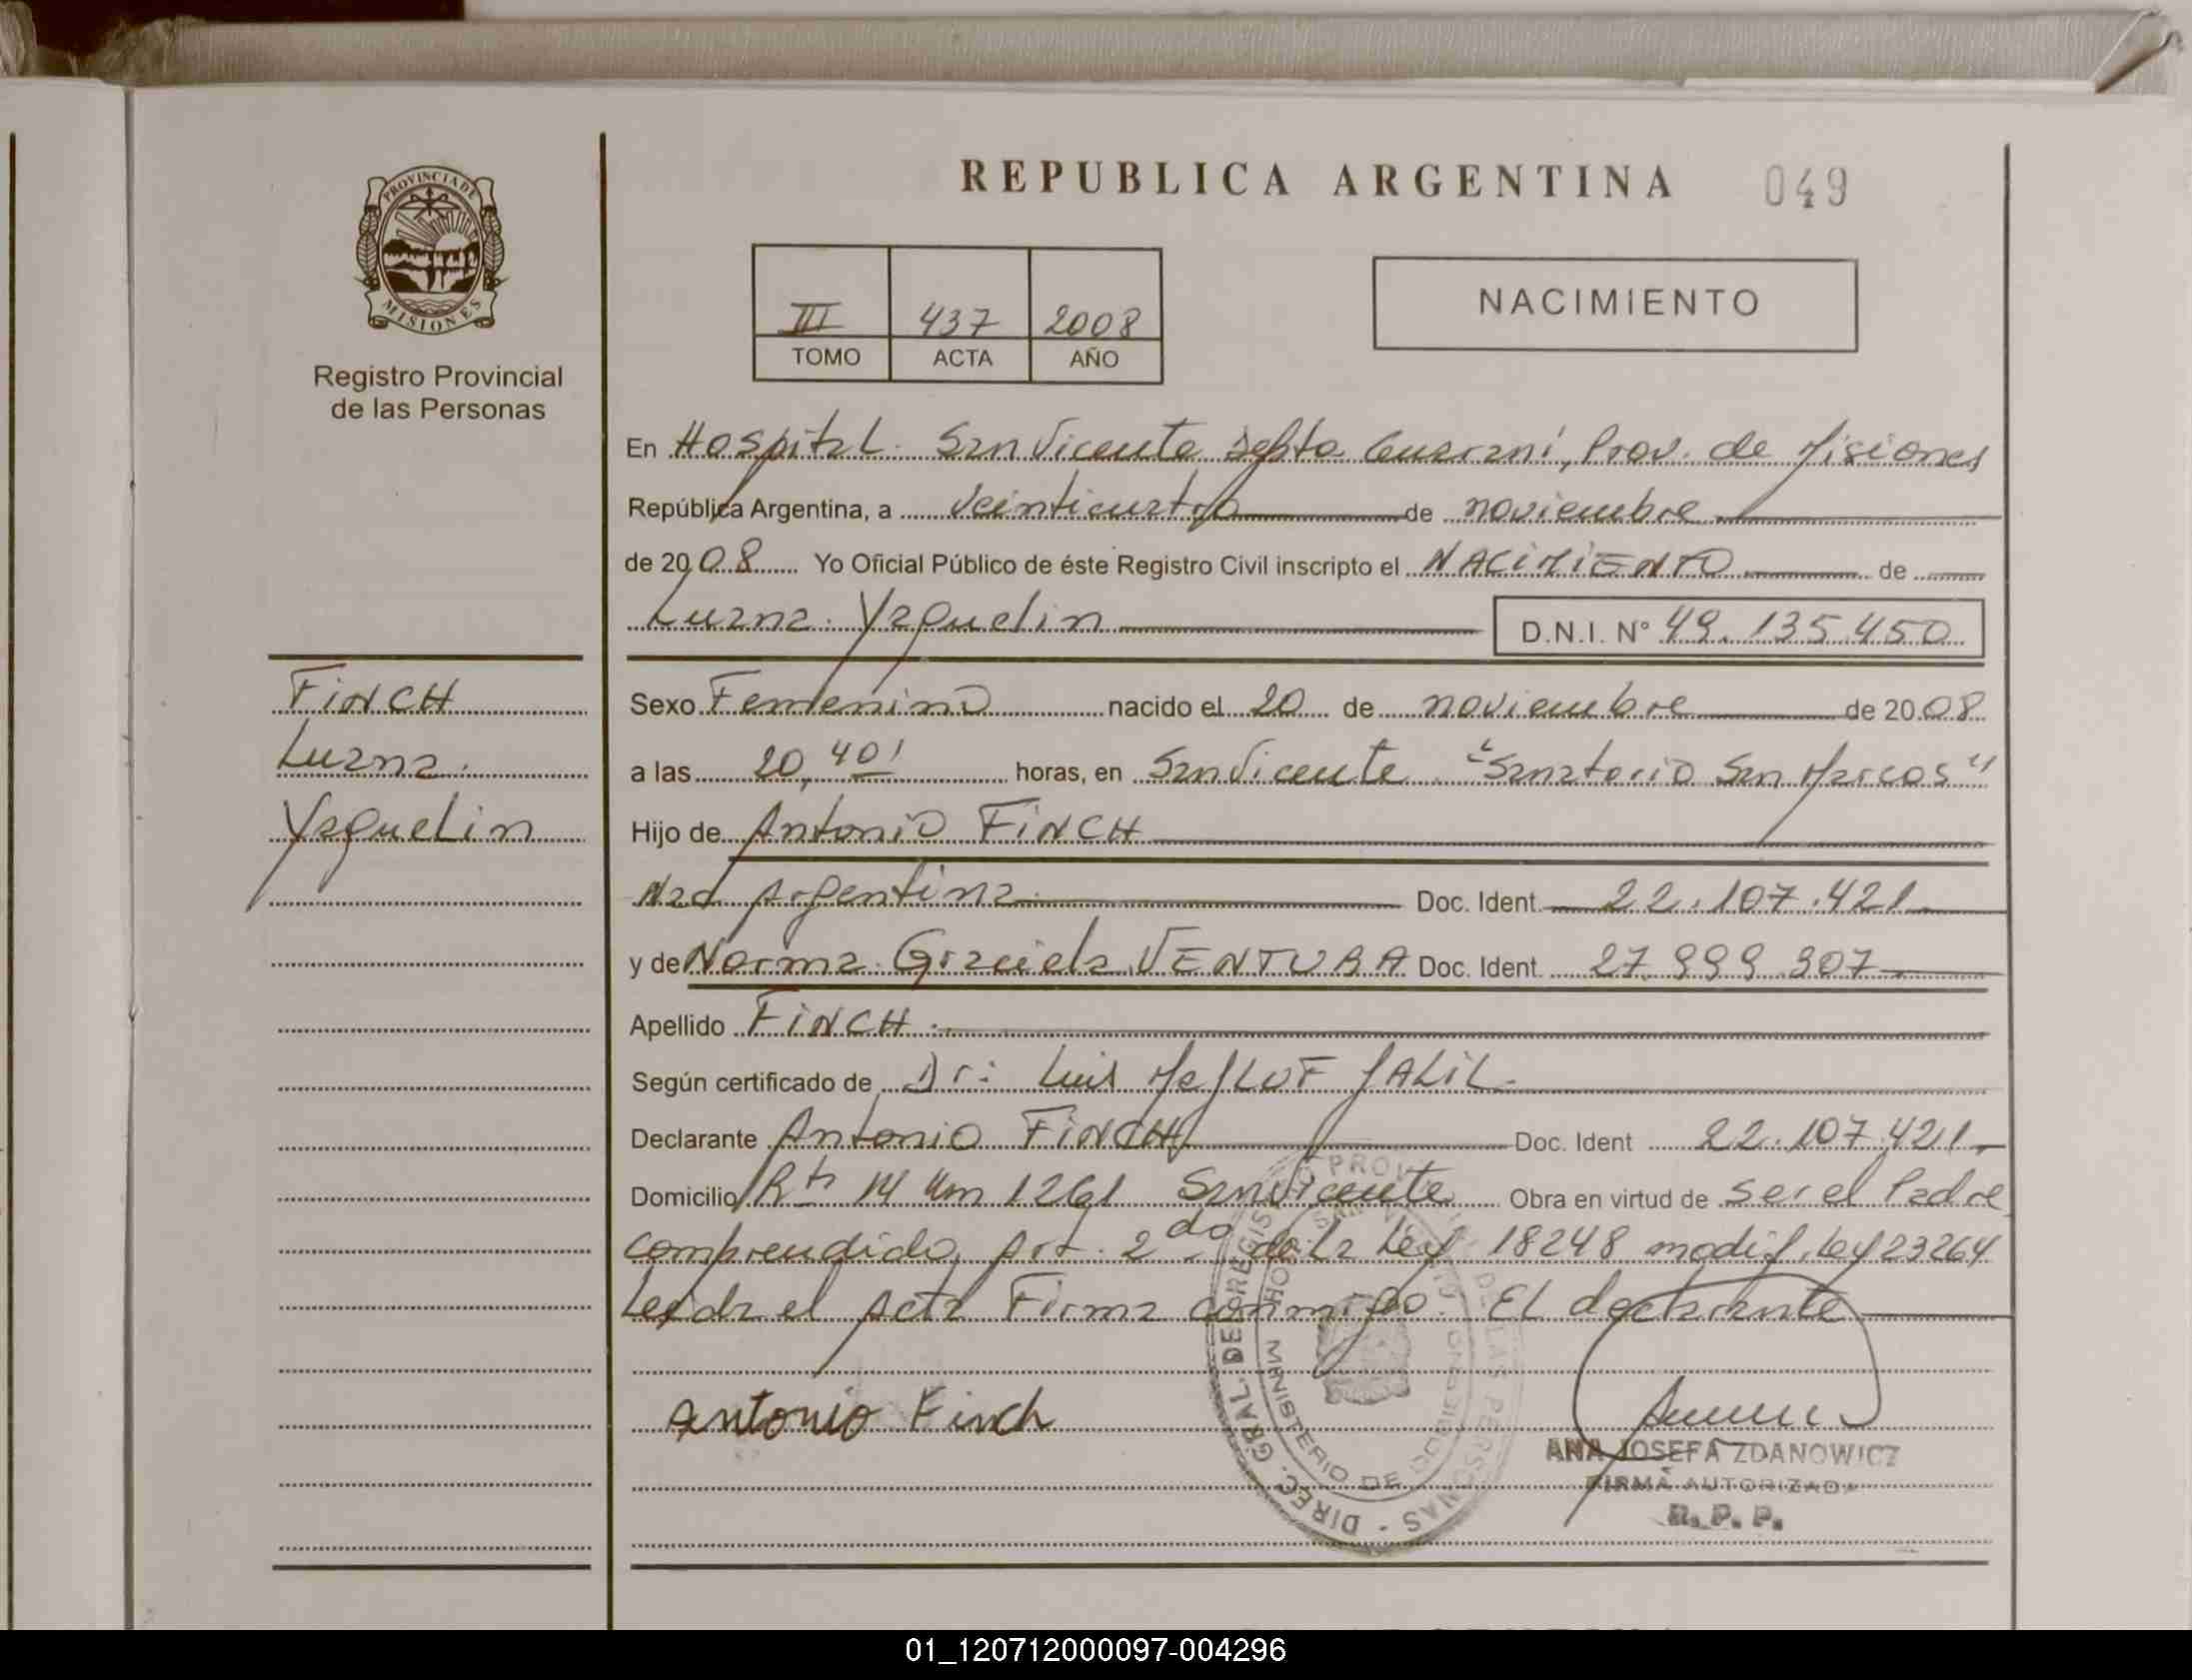 REPUBLICA ARGENTINA 049
PROVINCIA DE
MISIONES
Registro Provincial
de las Personas
III 437 2008
TOMO ACTA AÑO
NACIMIENTO
En Hospital San Vicente Depto Guaraní, Prov. de Misiones
República Argentina, a veinticuatro de noviembre
de 2008 Yo Oficial Público de éste Registro Civil inscripto el NACIMIENTO de
Luana Yaquelin D.N.I. N° 49.135.450
FINCH
Luana
Yaquelin
Sexo Femenino nacido el 20 de noviembre de 2008
a las 20,40' horas, en San Vicente "Sanatorio San Marcos"
Hijo de Antonio FINCH
Nac Argentina Doc. Ident. 22.107.421
y de Norma Graciela VENTURA Doc. Ident. 27.999.307
Apellido FINCH
Según certificado de Dr: Luis JALIL
Declarante Antonio FINCH Doc. Ident 22.107.421
Domicilio Rta 14 Km 1261 San Vicente Obra en virtud de ser el Padre
comprendido Art. 2do de la Ley 18248 modif. Ley 23264
Leída el Acta Firma conmigo El declarante
Antonio Finch
ANA JOSEFA ZDANOWICZ
FIRMA AUTORIZADA
R. P. P.
DIREC. GRAL. DE REGISTRO PROV. DE LAS PERSONAS
MINISTERIO DE GOBIERNO
01_120712000097-004296